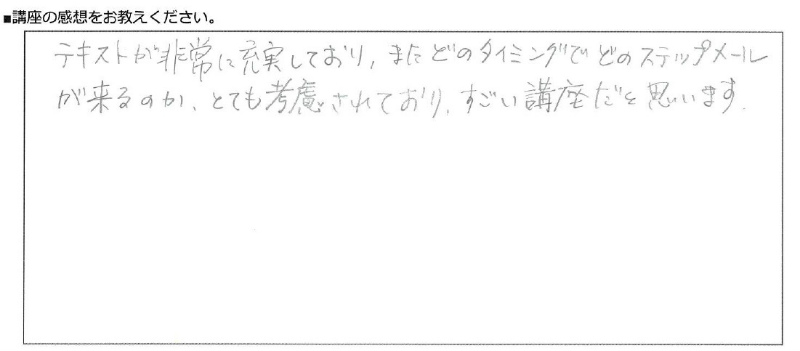 ■講座の感想をお教えください。
テキストが非常に充実しており，またどのタイミングでどのステップメール
が来るのか、とても考慮されており，すごい講座だと思います．